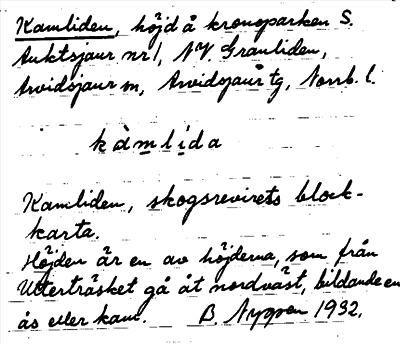 Kamliden, höjd å kronoparken S.
Auktsjaur nr 1, NV. Granliden,
Arvidsjaur sn, Arvidsjaur tg, Norrb. l.
kàmlída
Kamliden, skogsrevirets block-
karta.
Höjden är en av höjderna, som från
Utterträsket gå åt nordväst, bildande en
ås eller kam. B. Nyppen 1932.